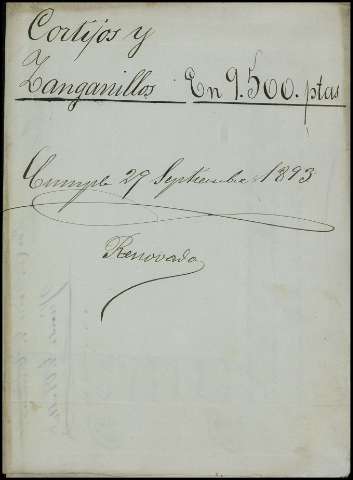 Cortijos y
Zanganillos En 9.500. ptas
Cumple 29 Septiembre 1893
Renovado